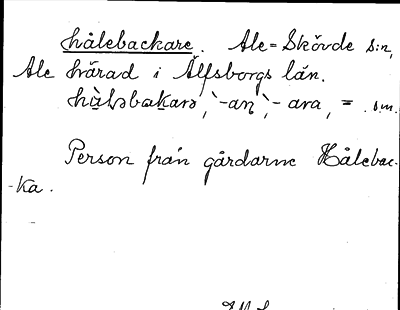 hålebackare. Ale-Skövde s:n,
Ale härad i Älfsborgs län.
-an, -ara, = . s.m.
Person från gårdarne Hålebac-
-ka.